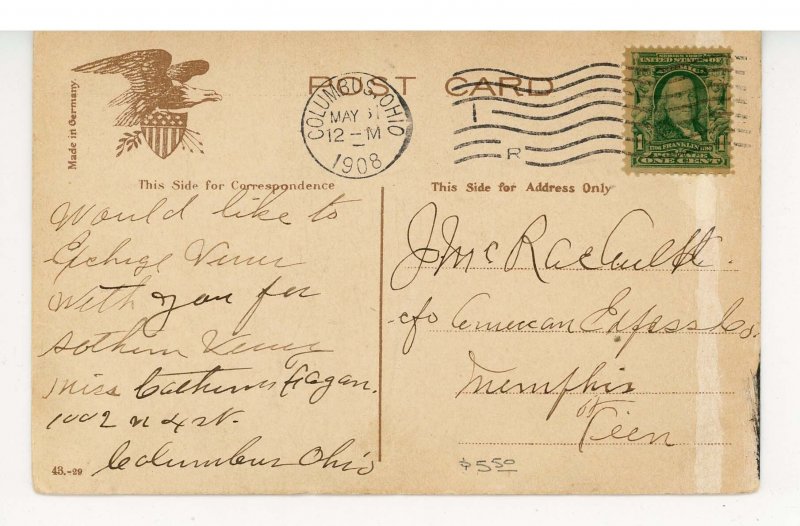 Made in Germany.
POST CARD
COLUMBUS, OHIO
MAY 31
12-M
1908
I
R
UNITED STATES OF
1 1706 FRANKLIN 1790 1
POSTAGE
ONE CENT
This Side for Correspondence
This Side for Address Only
Would like to
Exchage Veiws
with you for
Sothern Veiws
Miss Catherine Fagan.
1002 N 4 st.
Columbus Ohio
J. Mc
c/o American Express Co.
Memphis
Teen
$5.50
43.-29